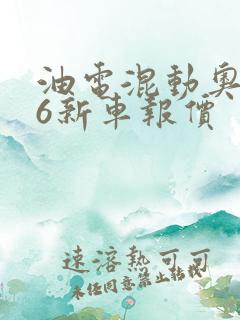 油電混動奧
6新車報價
速溶熱可可
未任同意禁止転載